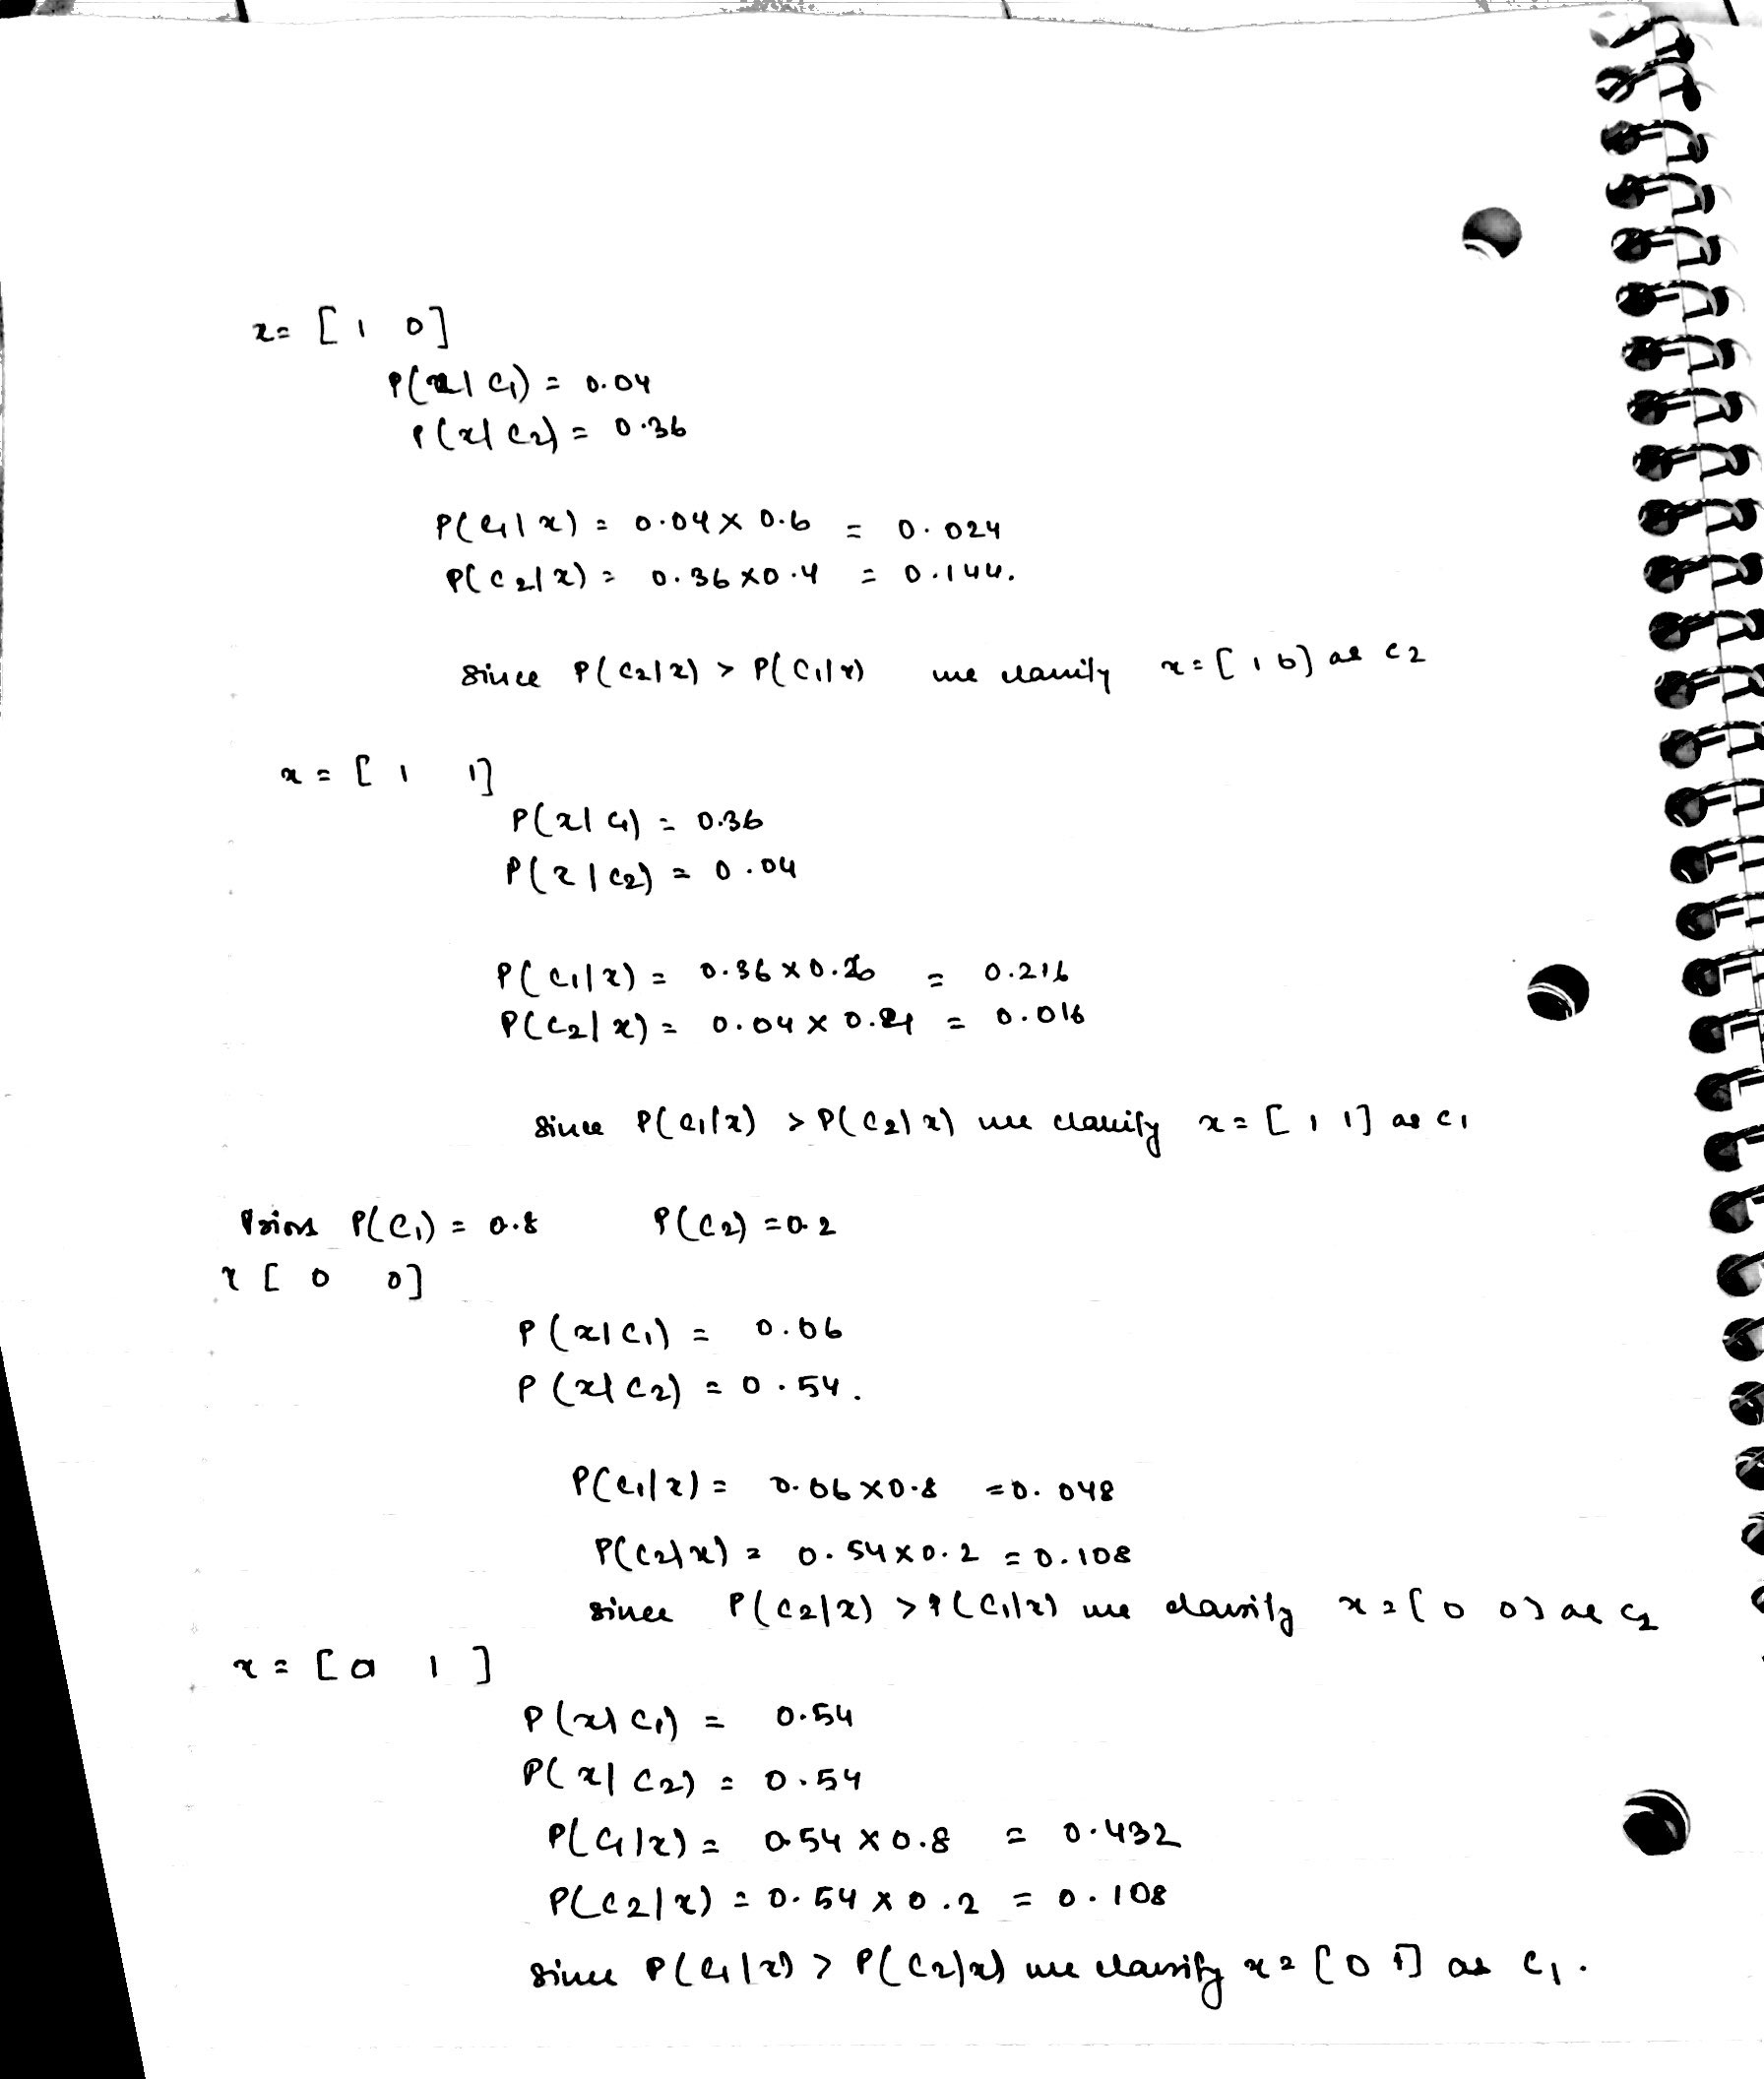 x = [ 1 0 ]
P(x|C1) = 0.04
P(x|C2) = 0.36
P(C1|x) = 0.04 × 0.6 = 0.024
P(C2|x) = 0.36 × 0.4 = 0.144.
since P(C2|x) > P(C1|x) we classify x = [ 1 0 ] as C2
x = [ 1 1 ]
P(x|C1) = 0.36
P(x|C2) = 0.04
P(C1|x) = 0.36 × 0.6 = 0.216
P(C2|x) = 0.04 × 0.4 = 0.016
since P(C1|x) > P(C2|x) we classify x = [ 1 1 ] as C1
Priors P(C1) = 0.8 P(C2) = 0.2
x [ 0 0 ]
P(x|C1) = 0.06
P(x|C2) = 0.54.
P(C1|x) = 0.06 × 0.8 = 0.048
P(C2|x) = 0.54 × 0.2 = 0.108
since P(C2|x) > P(C1|x) we classify x = [ 0 0 ] as C2
x = [ 0 1 ]
P(x|C1) = 0.54
P(x|C2) = 0.54
P(C1|x) = 0.54 × 0.8 = 0.432
P(C2|x) = 0.54 × 0.2 = 0.108
since P(C1|x) > P(C2|x) we classify x = [ 0 1 ] as C1.